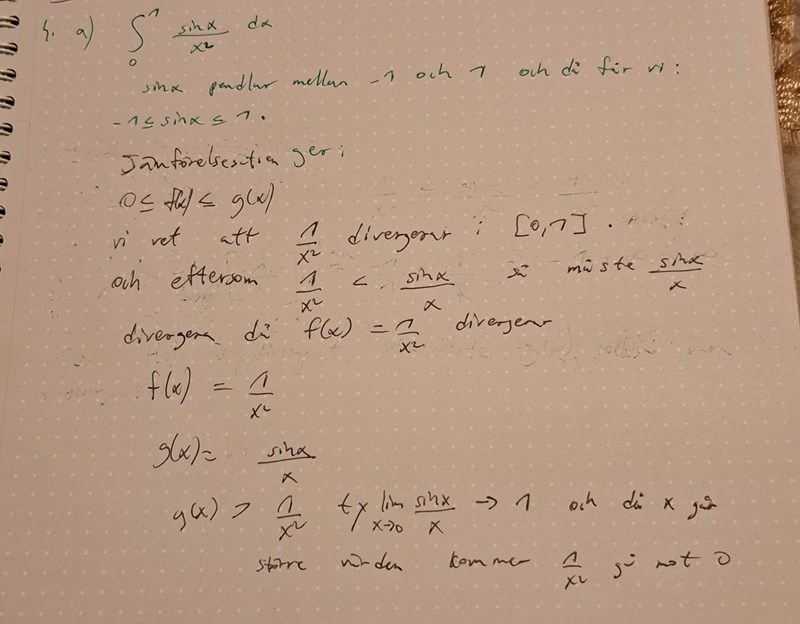 4. a) ∫₀¹ sinx/x² dx
sinx pendlar mellan -1 och 1 och då får vi:
-1 ≤ sinx ≤ 1.
Jämförelsesatsen ger:
0 ≤ f(x) ≤ g(x)
vi vet att 1/x² divergerar i [0,1].
och eftersom 1/x² < sinx/x så måste sinx/x
divergera då f(x) = 1/x² divergerar
f(x) = 1/x²
g(x) = sinx/x
g(x) > 1/x² ty lim x→0 sinx/x → 1 och då x går
större värden kommer 1/x² gå mot 0